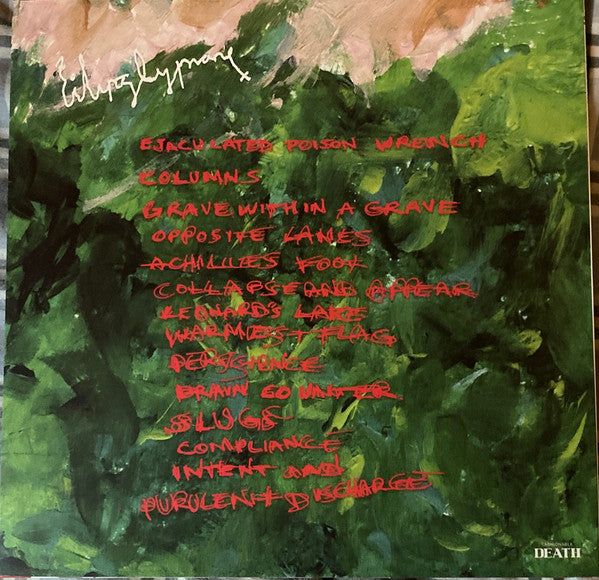 EJACULATED POISON WRENCH
COLUMNS
GRAVE WITHIN A GRAVE
OPPOSITE LANES
ACHILLIES FOOT
COLLAPSE AND APPEAR
LEONARD'S LAKE
WARMEST FLAG
DRAIN GO WATER
SLUGS
COMPLIANCE
INTENT AND
PURULENT DISCHARGE
FASHIONABLE
DEATH